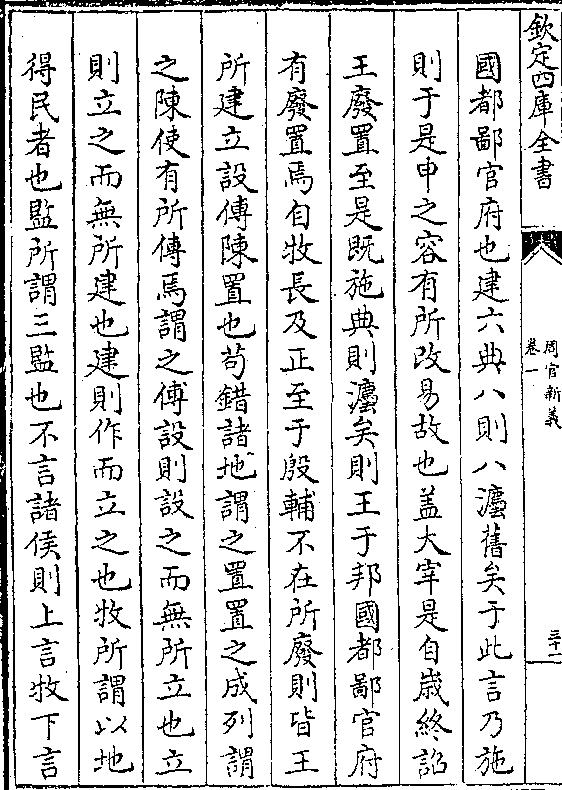 欽定四庫全書
周官新義
卷一
三十一
國都鄙官府也建六典八則八灋舊矣于此言乃施
則于是申之容有所改易故也盖大宰是自歳終詔
王廢置至是既施典則灋矣則王于邦國都鄙官府
有廢置焉自牧長及正至于殷輔不在所廢則皆王
所建立設傅陳置也苟錯諸地謂之置置之成列謂
之陳使有所傅焉謂之傅設則設之而無所立也立
則立之而無所建也建則作而立之也牧所謂以地
得民者也監所謂三監也不言諸侯則上言牧下言